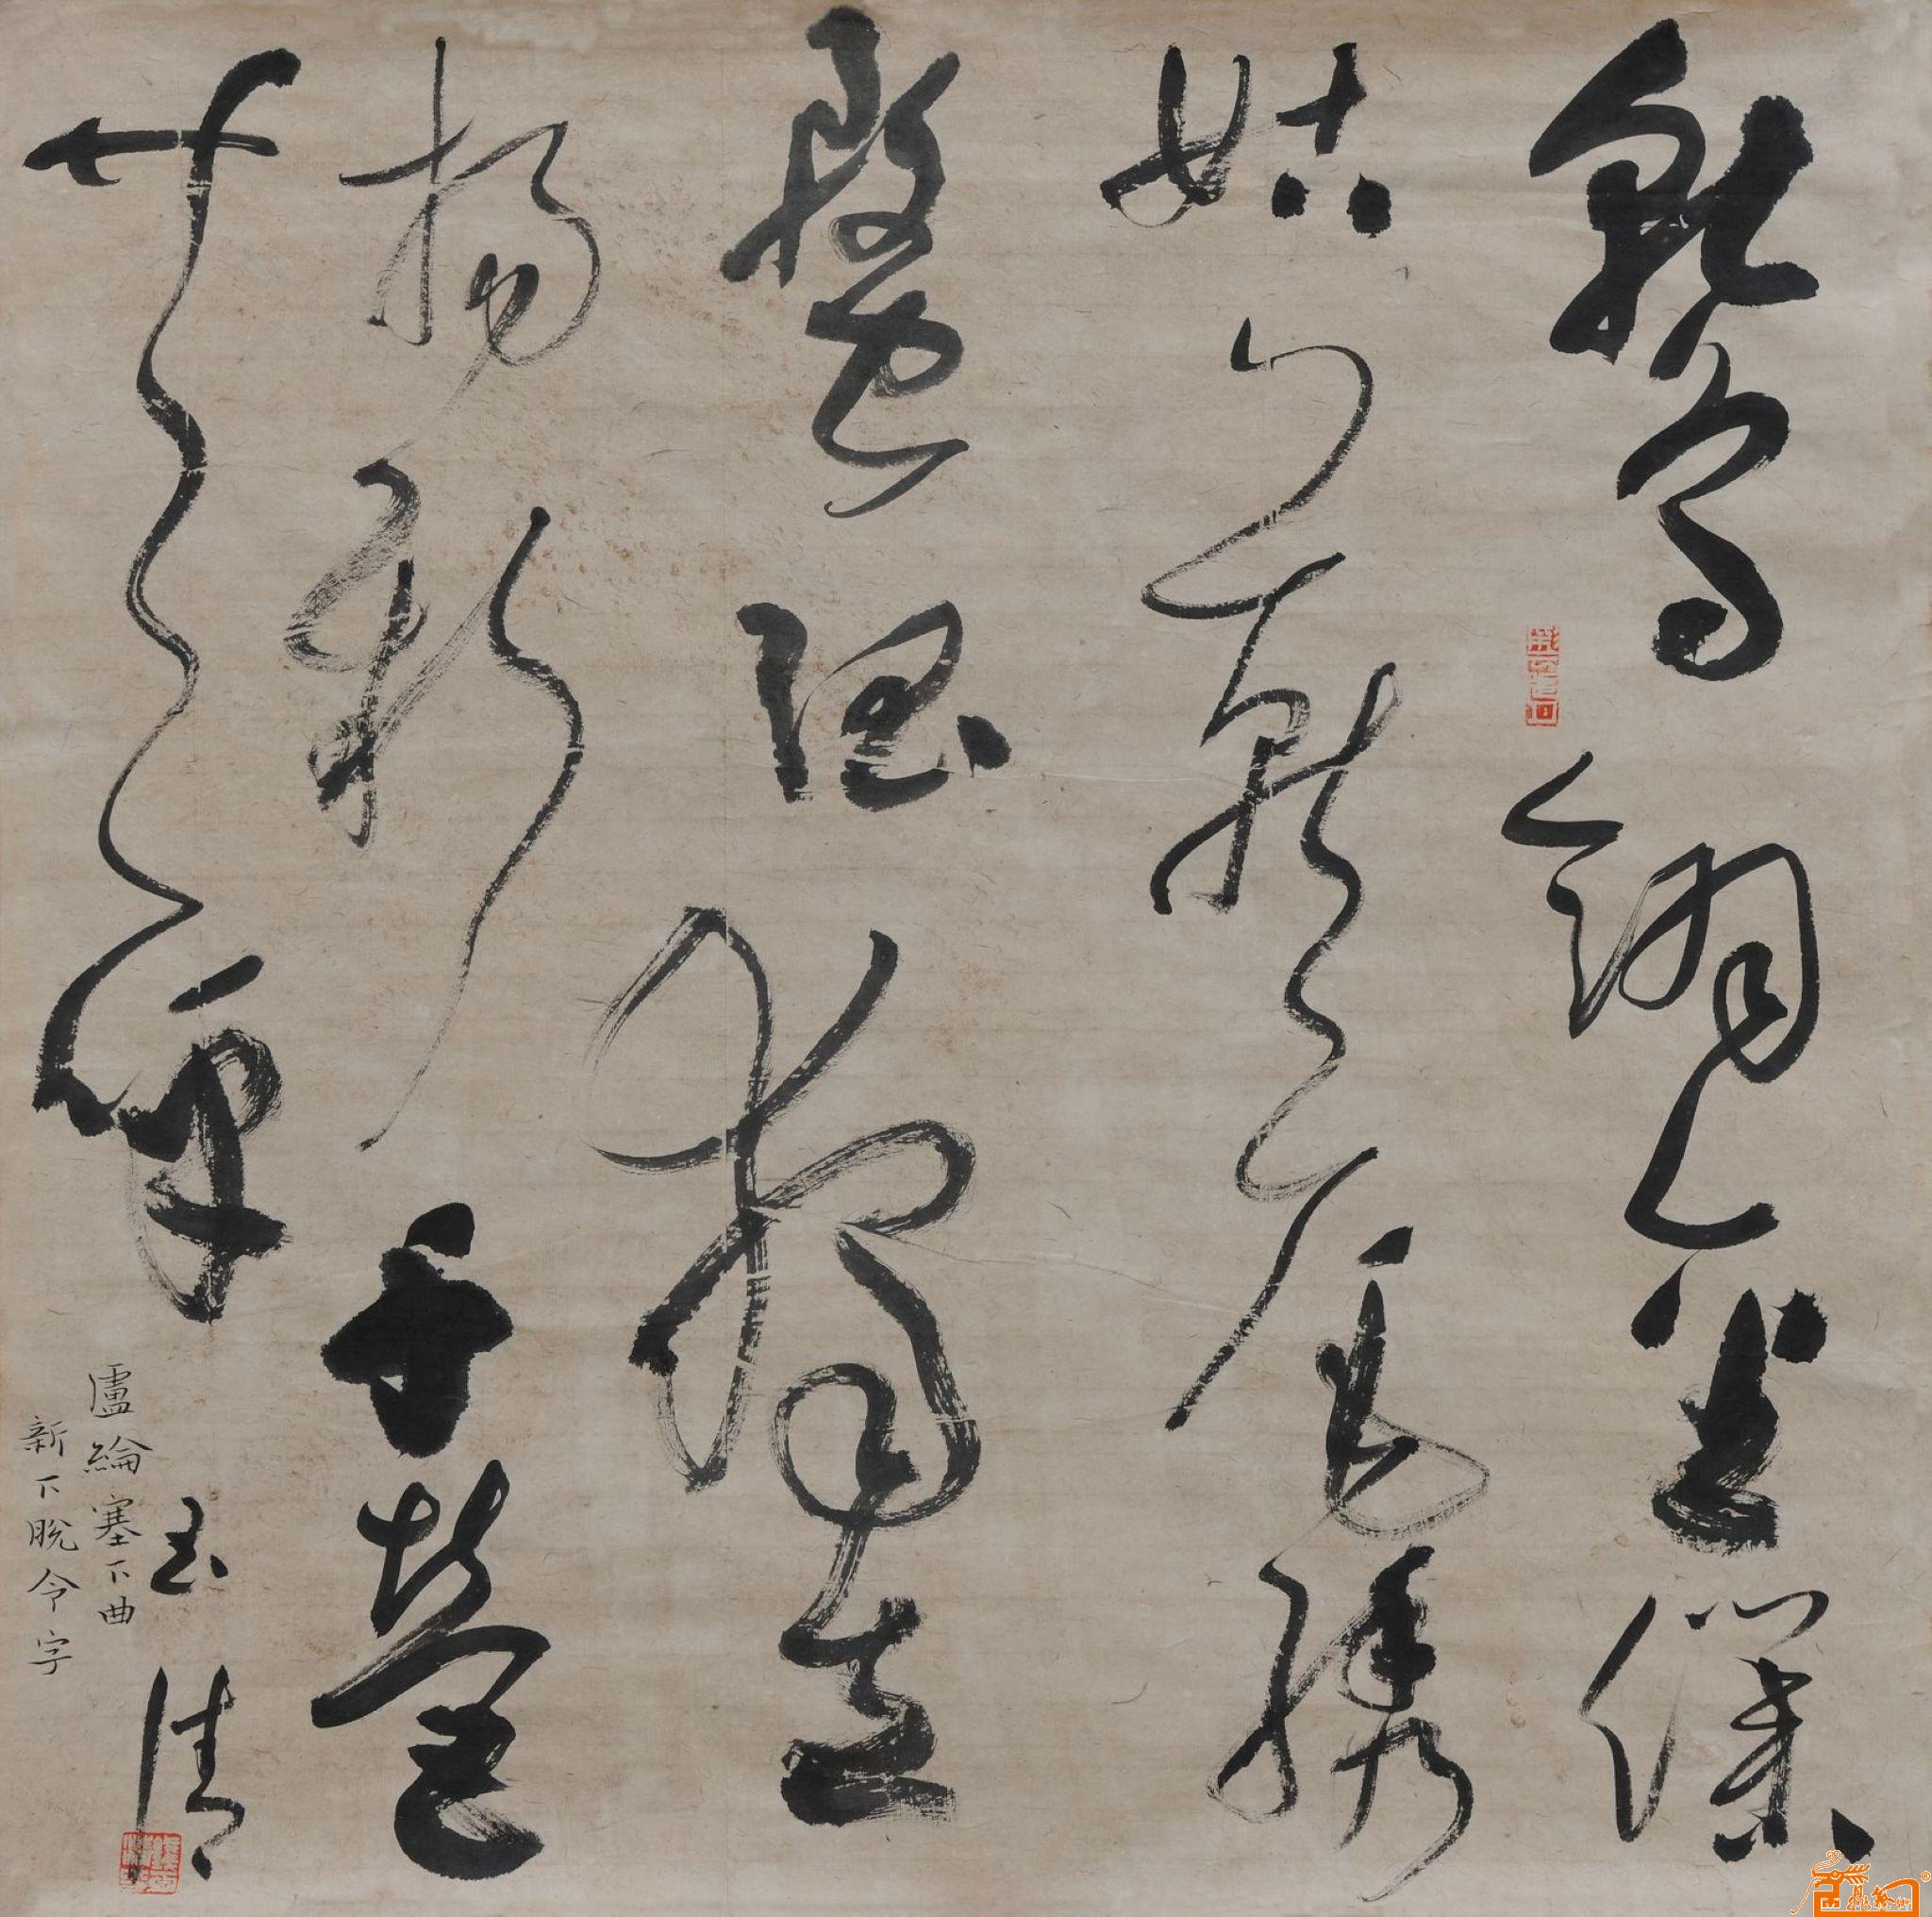 鷲翎金僕
姑燕尾繡
蝥弧獨立
揚新千營
共一呼
玉清
盧綸塞下曲
新下脫令字